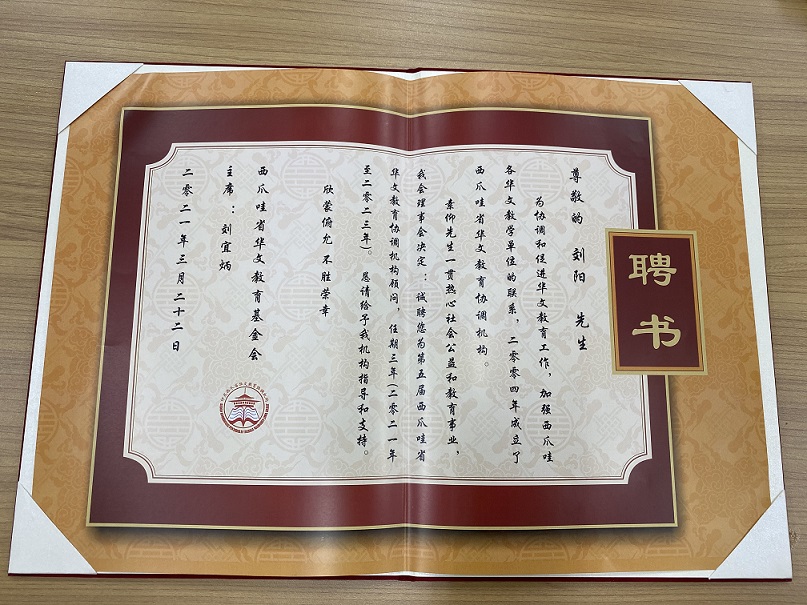 聘书
尊敬的 刘阳 先生
为协调和促进华文教育工作，加强西爪哇
各华文教学单位的联系，二零零四年成立了
西爪哇省华文教育协调机构。
素仰先生一贯热心社会公益和教育事业，
我会理事会决定：诚聘您为第五届西爪哇省
华文教育协调机构顾问，任期三年(二零二一年
至二零二三年)。 恳请给予我机构指导和支持。
欣蒙俯允 不胜荣幸
西爪哇省华文教育基金会
主席：刘宜炳
二零二一年三月二十二日